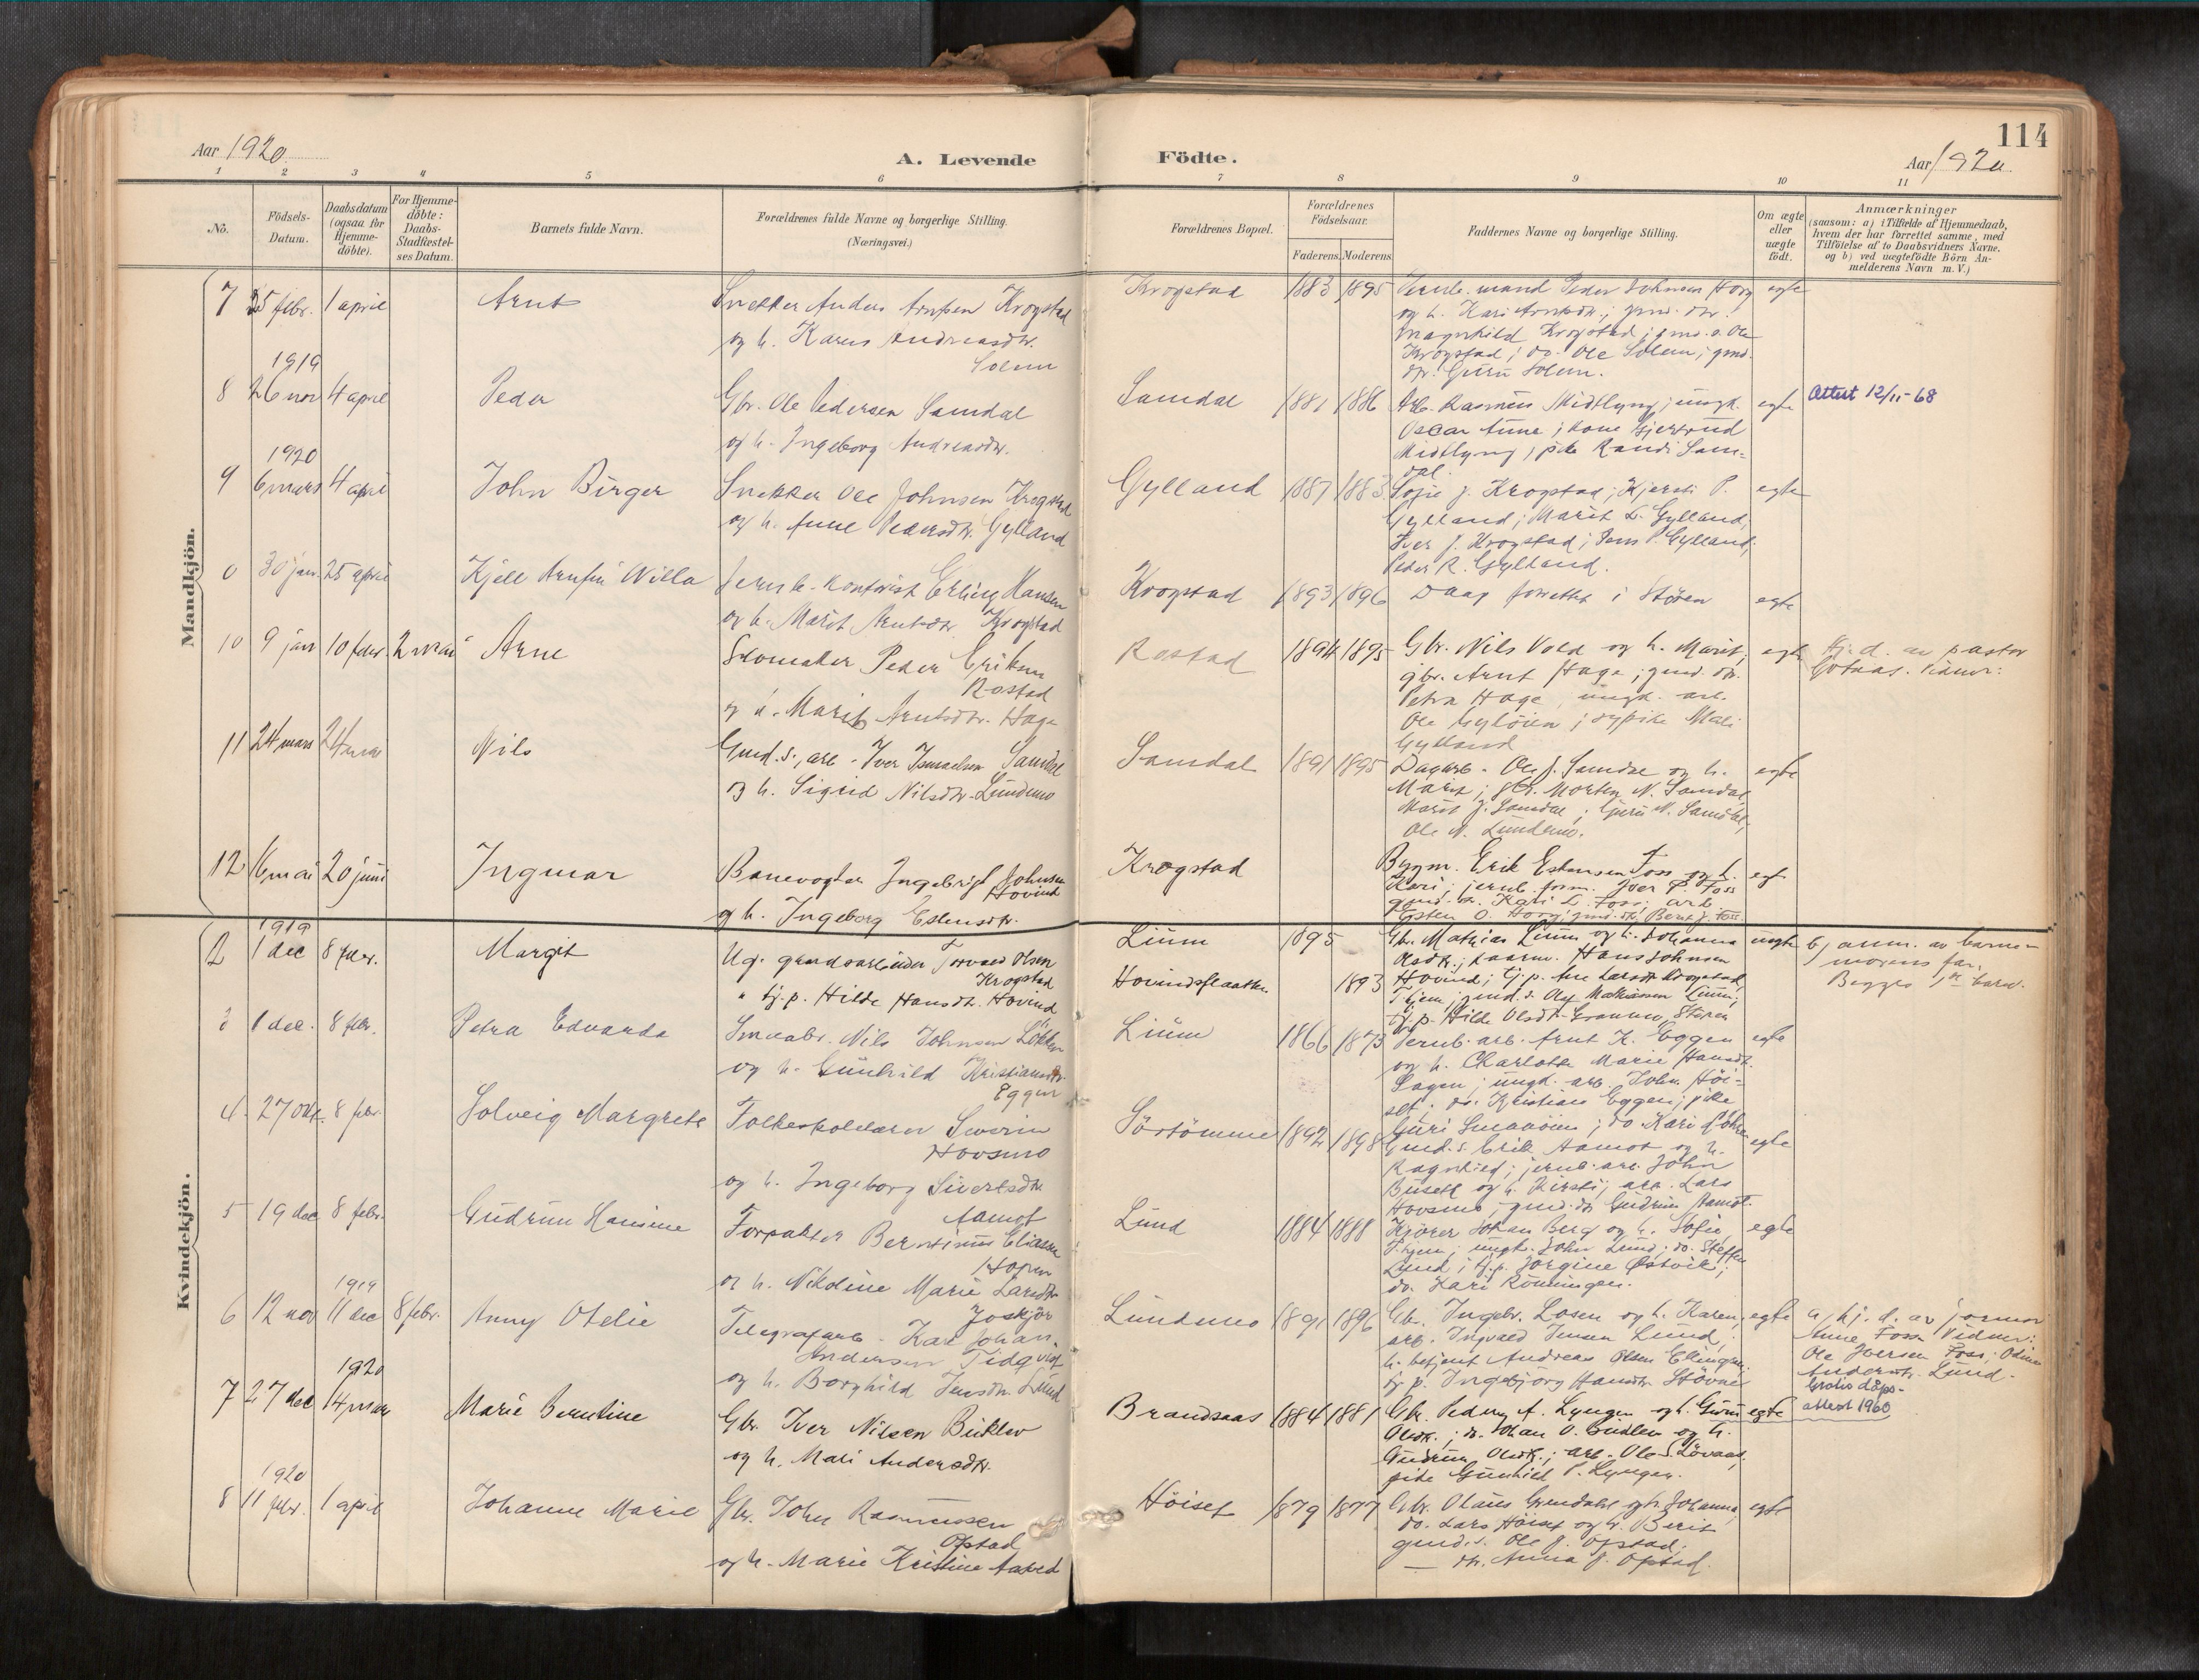 114
Aar 1920
A. Levende
Födte.
Aar 1920
1 2 3 4 5 6 7 8 9 10 11
No.
Födsels-
Datum.
Daabsdatum
(ogsaa for
Hjemme-
döbte).
For Hjemme-
döbte:
Daabs-
Stadfæstel-
ses Datum.
Barnets fulde Navn.
Forældrenes fulde Navne og borgerlige Stilling.
(Næringsvei.)
Forældrenes Bopæl.
Forældrenes
Födselsaar.
Faderens. Moderens.
Faddernes Navne og borgerlige Stilling.
Om ægte
eller
uægte
födt.
Anmærkninger
(saasom: a) i Tilfælde af Hjemmedaab,
hvem der har forrettet samme, med
Tilföielse af to Daabsvidners Navne.
og b) ved uægtefödte Börn An-
melderens Navn m. V.)
Mandkjön.
7 25 febr. 1 april Arnt
Snekker Anders Arntsen Krogstad
og h. Karen Andreasdtr.
Solem
Krogstad 1883 1895
Jernb. mand Peder Johnsen Horg
og h. Kari Arntsdtr.; gmd. dtr.
Magnhild Krogstad; gmd. s. Ole
Krogstad; do. Ole Solem; gmd.
dtr. Guru Solem.
egte
1919
8 26 nov 4 april Peder
Gbr. Ole Pedersen Samdal
og h. Ingeborg Andreasdtr.
Samdal 1881 1886
Arb. Rasmus Midtlyng; ungk.
Oscar Aune; kone Gjertrud
Midtlyng; pike Randi Sam-
dal.
egte
Attest 12/11-68
1920
9 6 mars 4 april John Birger
Snekker Ole Johnsen Krogstad
og h. Anne Pedersdtr. Gylland
Gylland 1887 1883
Sofie J. Krogstad; Kjersti P.
Gylland; Marit L. Gylland;
Iver J. Krogstad; Jens P. Gylland;
Peder R. Gylland.
egte
0 30 jan. 25 april Kjell Arnfin Willa
Jernb.-kontorist Erling Hansen
og h. Marit Arntsdtr. Krogstad
Krogstad 1893 1896
Daap forrettet i Stören
egte
10 9 jan 10 febr. 2 mai Arne
Skomaker Peder Eriksen
Rostad
og h. Marit Arntsdtr. Hage
Rostad 1894 1895
Gbr. Nils Vold og h. Marit;
gbr. Arnt Hage; gmd. dtr.
Petra Hage, ungk. arb.
Ole Gylöien; sypike Mali
Gylland
egte
Hj. d. av pastor
Götaas. Vidner:
11 24 mars 24 mai Nils
Gmd. s., arb. Iver Ismaelsen Samdal
og h. Sigrid Nilsdtr. Lundemo
Samdal 1891 1895
Dagarb. Ole J. Samdal og h.
Marit; gbr. Morten N. Samdal,
Marit J. Samdal; Guru N. Samdal;
Ole N. Lundemo.
egte
12 16 mai 20 juni Ingmar
Banevogter Ingebrigt Johnsen
Hovind
og h. Ingeborg Estensdtr.
Krogstad
Bygm. Erik Estensen Foss og h.
Kari; jernb. form. Iver P. Foss
gmd. dtr. Kari L. Foss; arb.
Esten O. Horg; gmd. dtr. Berit J. Foss.
egte
Kvindekjön.
1919
2 1 dec 8 febr. Margit
Ug. grundsarbeider Torvald Olsen
Krogstad
" tj. p. Hilde Hansdtr. Hovind
Lium 1895
Hovindsflaatten 1893
Gbr. Mathias Lium og h. Johanna
Olsdtr.; kaarm. Hans Johnsen
Hovind; tj. p. Ane Larsdtr. Krogstad,
Thjem; gmd. s. Olaf Mathiassen Lium;
tj. p. Hilde Olsdtr. Granmo, Stören
uegte
b) anm. av barne-
morens far.
Begges 1ste barn.
3 1 dec. 8 febr. Petra Edvarda
Smaabr. Nils Johnsen Løkken
og h. Gunhild Kristiansdtr.
Eggen
Lium 1866 1873
Jernb. arb. Arnt K. Eggen
og h. Charlotte Marie Hansdtr.
Sagen; ungk. arb. John Höi-
set; do. Kristian Eggen; pike
Guri Smaaöien; do. Kari
egte
4 27 okt. 8 febr. Solveig Margrete
Folkeskolelærer Severin
Hovsmo
og h. Ingeborg Sivertsdtr.
Aamot
Sörtömme 1892 1898
Gmd. s. Erik Aamot og h.
Ragnhild; jernb. arb. John
Busett og h. Kirsti; arb. Lars
Hovsmo; gmd. dtr. Gudrun Aamot.
egte
5 19 dec 8 febr. Gudrun Hansine
Forpakter Berntinus Eliassen
Hopen
og h. Nikoline Marie Larsdtr.
Joskjör
Lund 1884 1888
Kjörer Johan Berg og h. Sofie,
Thjem; ungk. John Lund; do. Steffen
Lund; tj. p. Jorgine Østvik;
do. Kari Rönningen.
egte
1919
6 12 nov 11 dec 8 febr. Anny Otelie
Telegrafarb. Karl Johan
Andersen Tidqvist
og h. Borghild Jensdtr. Lund
Lundemo 1891 1896
Gbr. Ingebr. Losen og h. Karen;
arb. Ingvald Jensen Lund;
h. betjent Andreas Olsen Ellingsen;
tj. p. Ingebjörg Hansdtr. Stövne
egte
a) hj. d. av jormor
Anne Foss. Vidner:
Ole Iversen Foss; Odine
Andersdtr. Lund.
1920
7 27 dec 14 mar Marie Berntine
Gbr. Iver Nilsen Buklev
og h. Mali Andersdtr.
Brandsaas 1884 1881
Gbr. Peder A. Lyngen og h. Guru
Olsdtr.; do. Johan O. Budlen og h.
Gudrun Olsdtr.; arb. Ole S. Lövaas,
pike Gunhild P. Lyngen.
egte
Gratis dåps-
attest 1960
1920
8 11 febr. 1 april Johanne Marie
Gbr. John Rasmussen
Opstad
og h. Marie Kristine Aasved
Höiset 1879 1877
Gbr. Olaus Grendahl og h. Johanna,
do. Lars Höiset og h. Berit
gmd. s. Ole J. Opstad;
— dtr. Anna J. Opstad.
egte